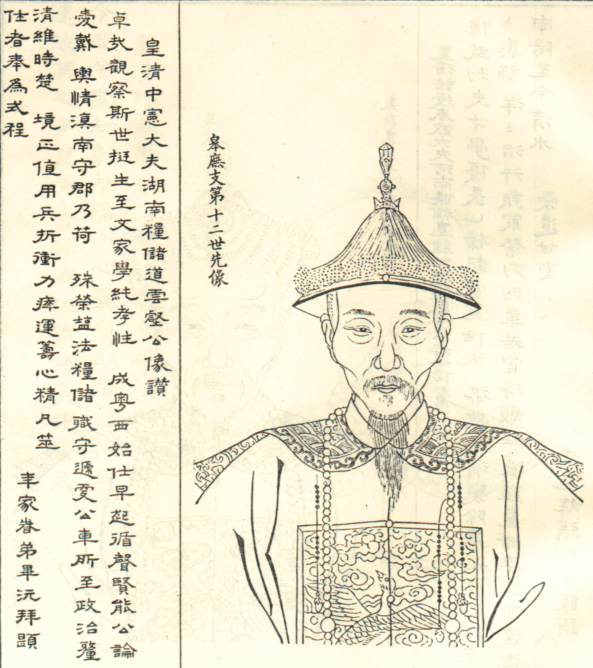 皋廡支第十二世先像
皇清中憲大夫湖南糧儲道雲壑公像讚
卓犖觀察斯世挺生至文家學純孝性 成粵西始仕早起循聲賢能公論
愛戴 輿情滇南守郡乃荷 殊榮 法糧儲職守遞更公車所至政治釐
清維時楚 境正值用兵折衝力瘁運籌心精凡茲
仕者奉為式程
年家眷弟畢沅拜題